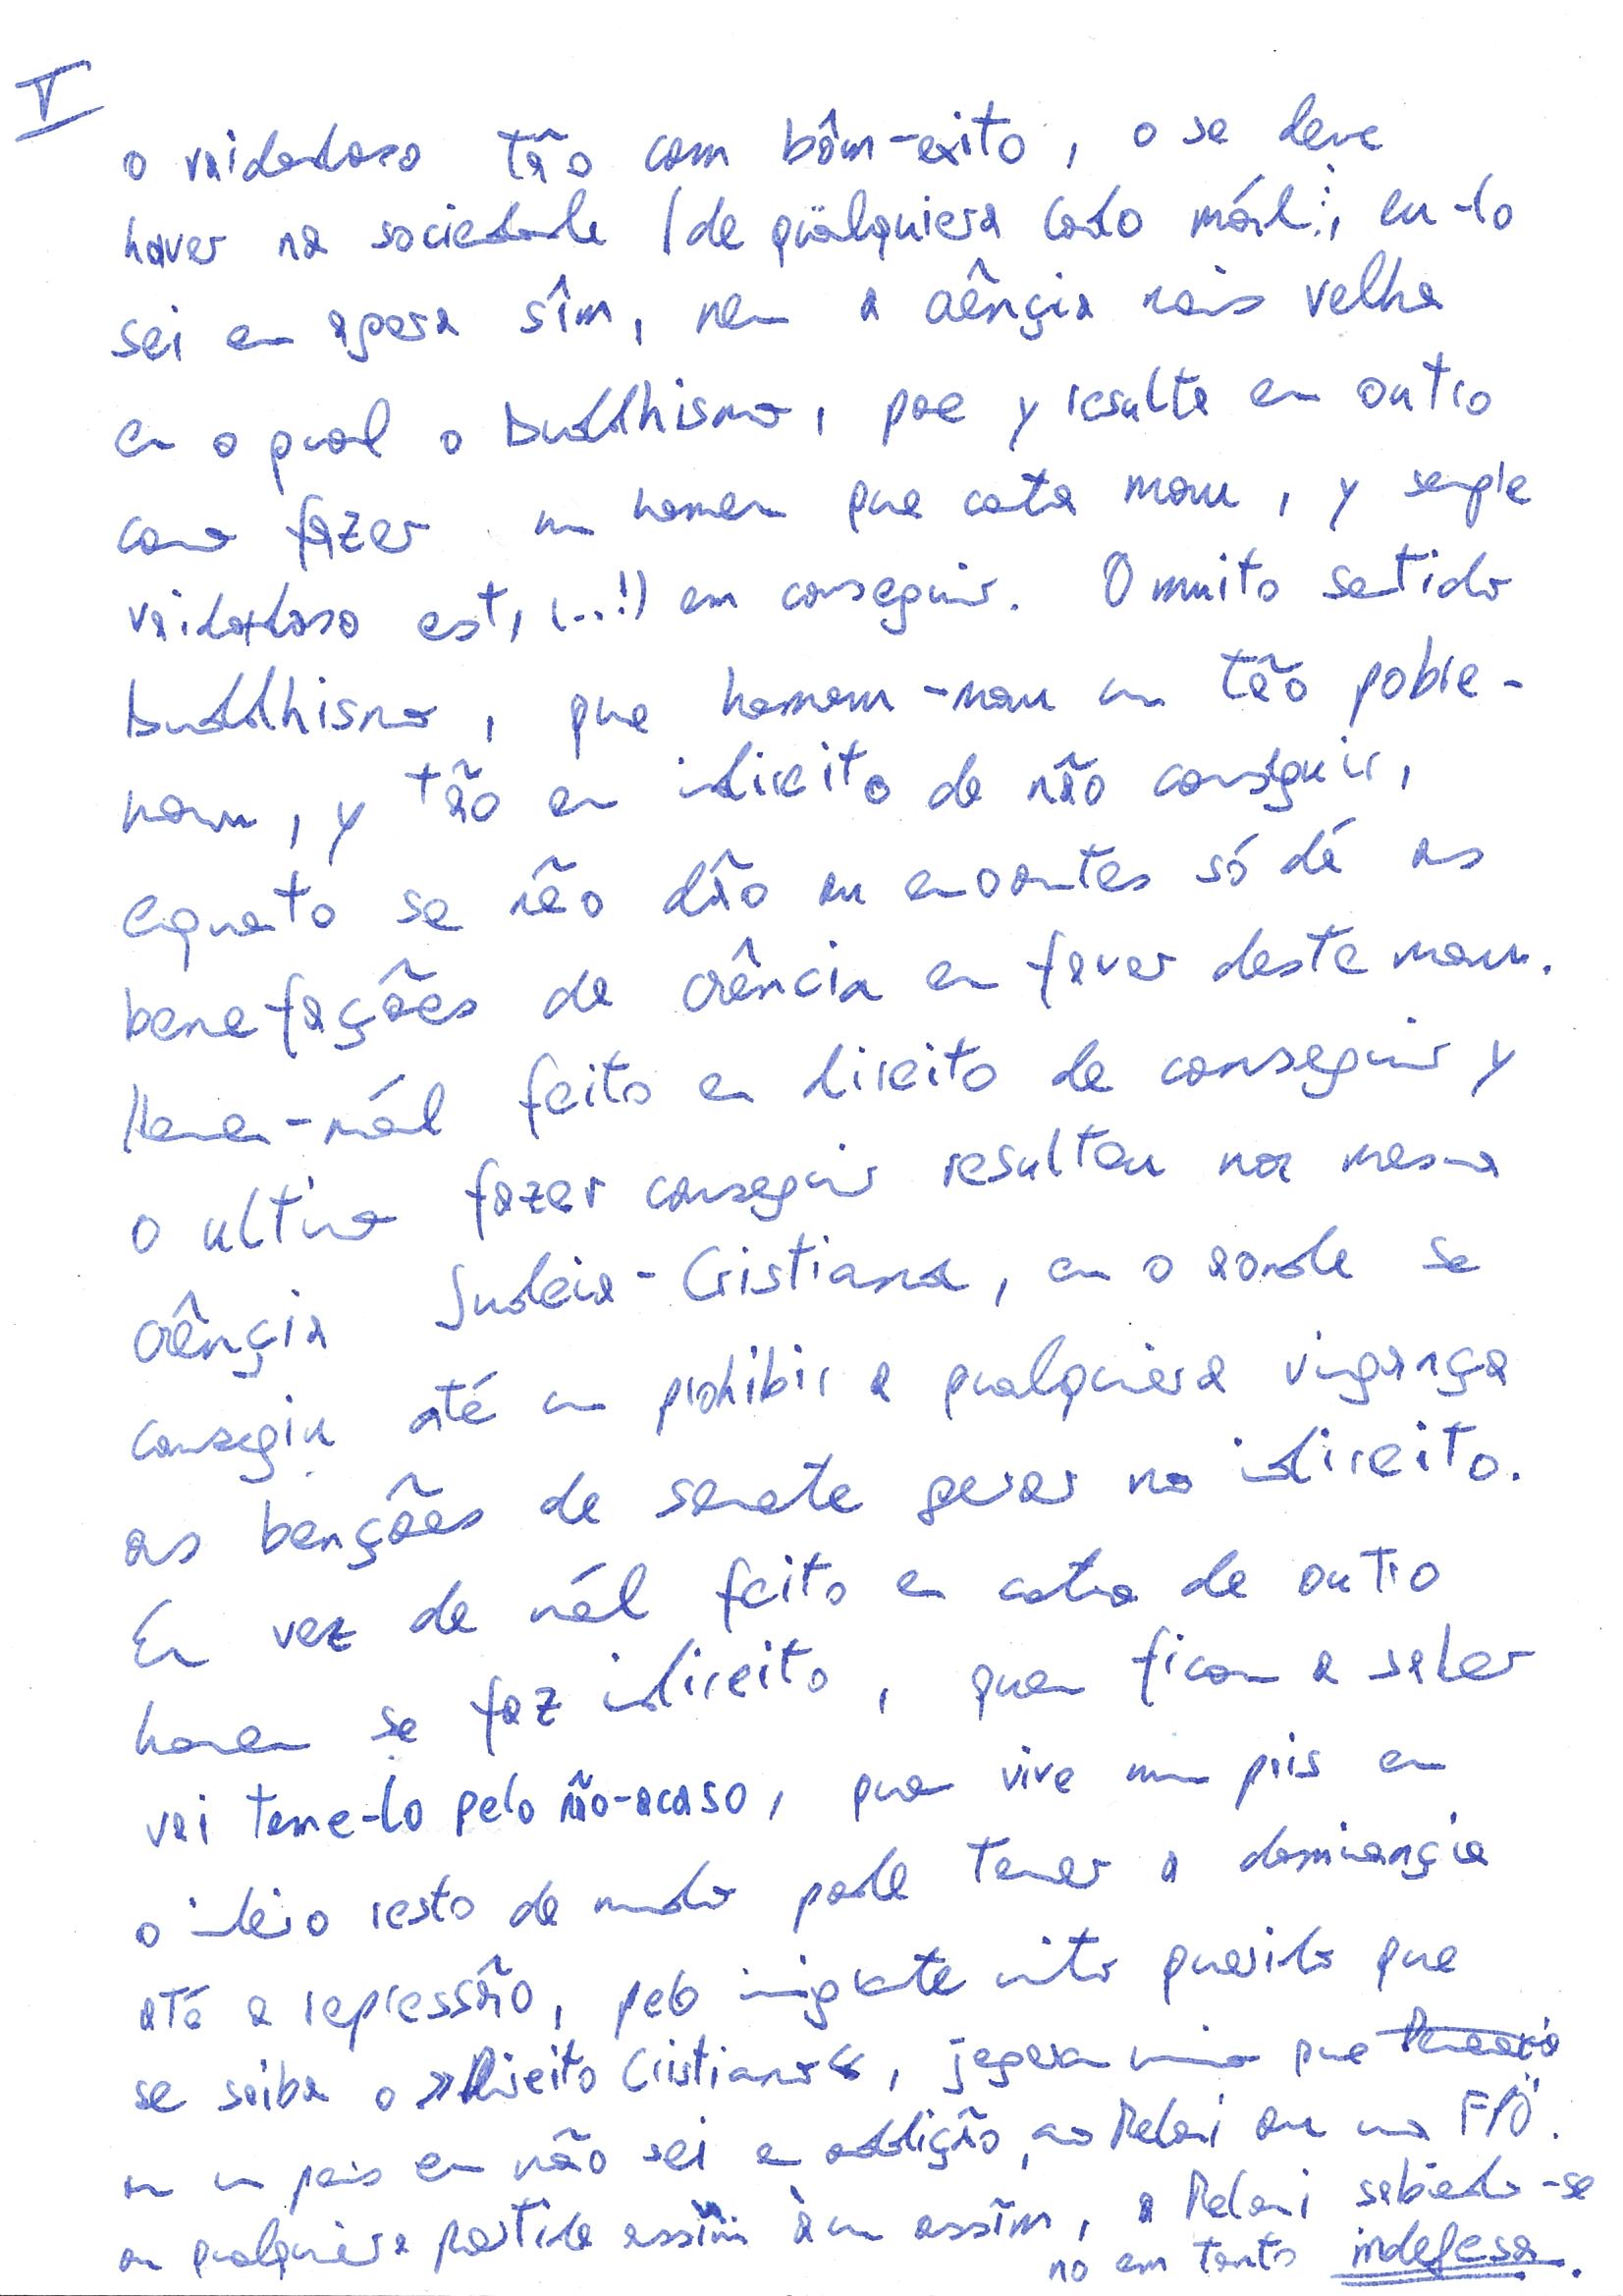 V
o vaidadoso tão com bôm-exito, o se deve
haver na sociedade (de qüalquiera lado mál:, eu-lo
sei em agora sîm, nem a crênçia mais velha
em o qual o buddhismo, poe y resulta em outro
como fazer um homem que cata mau, y sempre
vaidadoso est, (..!) em conseguir. O muito sentido
buddhismo, que homem-mau um tão pobre-
mau, y tão em indireito de não conseguir,
enquanto se não dão au encantes só dé as
benefações de crência em faver deste mau.
Homem-mál feito em direito de conseguir y
o ultimo fazer conseguir resultou na mesma
crênçia Judeia-Cristiana, em o aonde se
conseguiu até um prohibir a qualquiera vingança
as bençães de semente gerar no indireito.
Em vez de mál feito em contra de outro
homem se faz indireito, quem ficam a saber
vai teme-lo pelo não-acaso, quem vive num pais em
o inteiro resto de mundo pode temer a demiançia
até a repressão, pelo imigrante muito querido que
se saiba o »Direito Cristiano«, jegeram que
ou um pais em não sei em addição, ao Meloni ou um FPÖ.
ou qualquiera partide assim à um assim, a Meloni sabiendo-se
no em tanto indefesa.